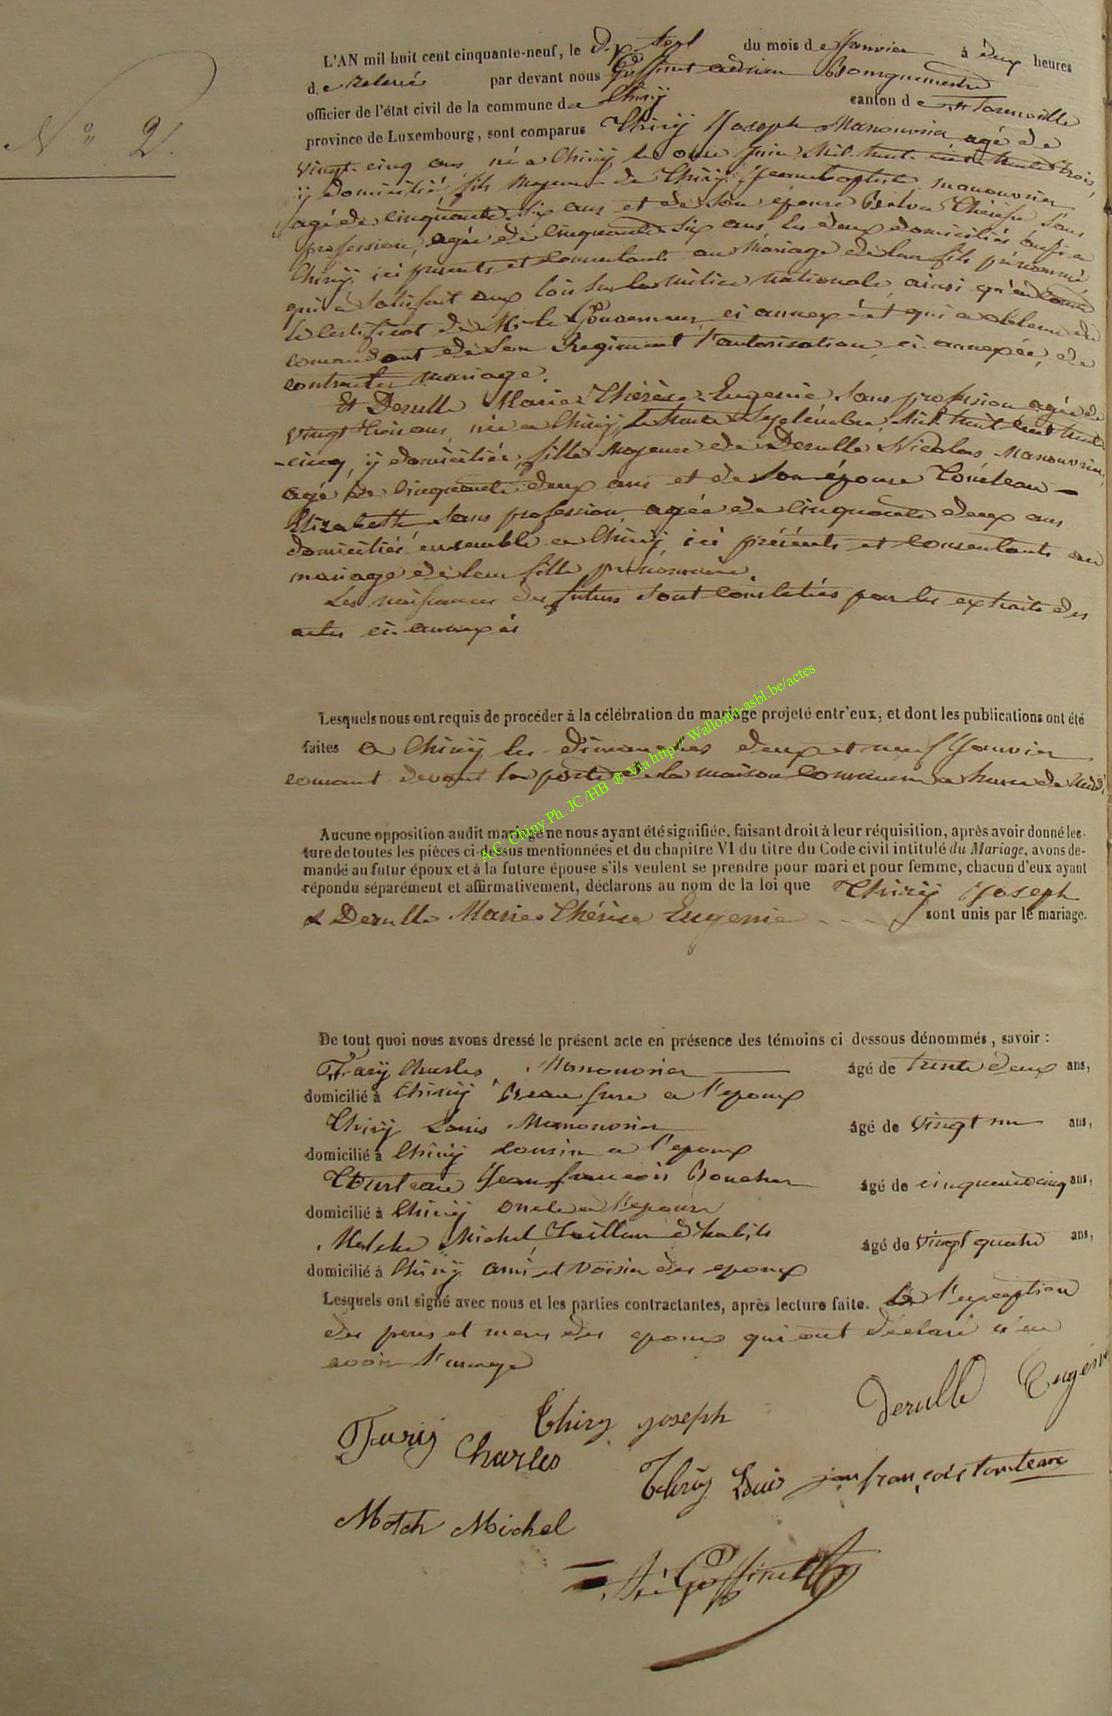 N° 2.
L'AN mil huit cent cinquante-neuf, le dix sept du mois de Janvier à deux heures
de relevée par devant nous Goffinet adrien Bourgmestre
officier de l'état civil de la commune de Chiny canton de florenville
province de Luxembourg, sont comparus Thiry Joseph Manouvrier agé de
vingt-cinq ans, né a Chiny le onze Juin Mil huit cent trente trois,
y domicilié, fils Majeur de Thiry Jean baptiste manouvrier
agé de cinquante six ans et de son épouse Thérèse sans
profession, agée de cinquante six ans, les deux domiciliés aussi a
Chiny ici présents et consentants au Mariage de leur fils prénommé,
qui a satisfait aux lois sur la milice nationale, ainsi qu'en
le certificat de Mr le Gouverneur ci annexé et qui a obtenu du
comandant de son Regiment l'autorisation, ci-annexée, de
contracter mariage.
Et Derulle Marie Thérèse Eugenie sans profession agée de
vingt trois ans, née a Chiny, le trente Septembre Mil huit cent trente
-cinq, y domiciliée, fille Majeure de Derulle Nicolas Manouvrier,
agé de cinquante deux ans et de son épouse Tourteau -
Elizabeth sans profession agée de cinquante deux ans
domiciliés ensemble a Chiny ici présents et consentants au
mariage de leur fille prénommée.
Les naissances des futurs sont constatées par les extraits des
actes ci-annexés
Lesquels nous ont requis de procéder à la célébration du mariage projeté entr'eux, et dont les publications ont été
faites a Chiny les dimanches deux et neuf Janvier
courant devant la porte de la maison commune a heure de Midi.
Aucune opposition audit mariage ne nous ayant été signifiée, faisant droit à leur réquisition, après avoir donné lec-
ture de toutes les pièces ci-dessus mentionnées et du chapitre VI du titre du Code civil intitulé du Mariage, avons de-
mandé au futur époux et à la future épouse s'ils veulent se prendre pour mari et pour femme, chacun d'eux ayant
répondu séparément et affirmativement, déclarons au nom de la loi que Thiry Joseph
& Derulle Marie Thérèse Eugenie sont unis par le mariage.
De tout quoi nous avons dressé le présent acte en présence des témoins ci dessous dénommés, savoir :
Charles Manouvrier âgé de trente deux ans,
domicilié à Chiny Beau frere a l'epoux
Thiry Louis Manouvrier âgé de vingt un ans,
domicilié à Chiny cousin a l'epoux
Tourteau Jean françois âgé de cinquante cinq ans,
domicilié à Chiny oncle a l'epouse
Michel Tailleur d'habits âgé de vingt quatre ans,
domicilié à Chiny ami et voisin des epoux
Lesquels ont signé avec nous et les parties contractantes, après lecture faite. a l'exception
des peres et meres des epoux qui ont déclaré n'en
avoir l'usage
Thiry joseph
Derulle Eugénie
Charles
Thiry Louis
jean françois tourteau
Motch Michel
Goffinet
A.C. Chiny Ph. JC /HB @ Via http:// Wallonia-asbl.be/actes